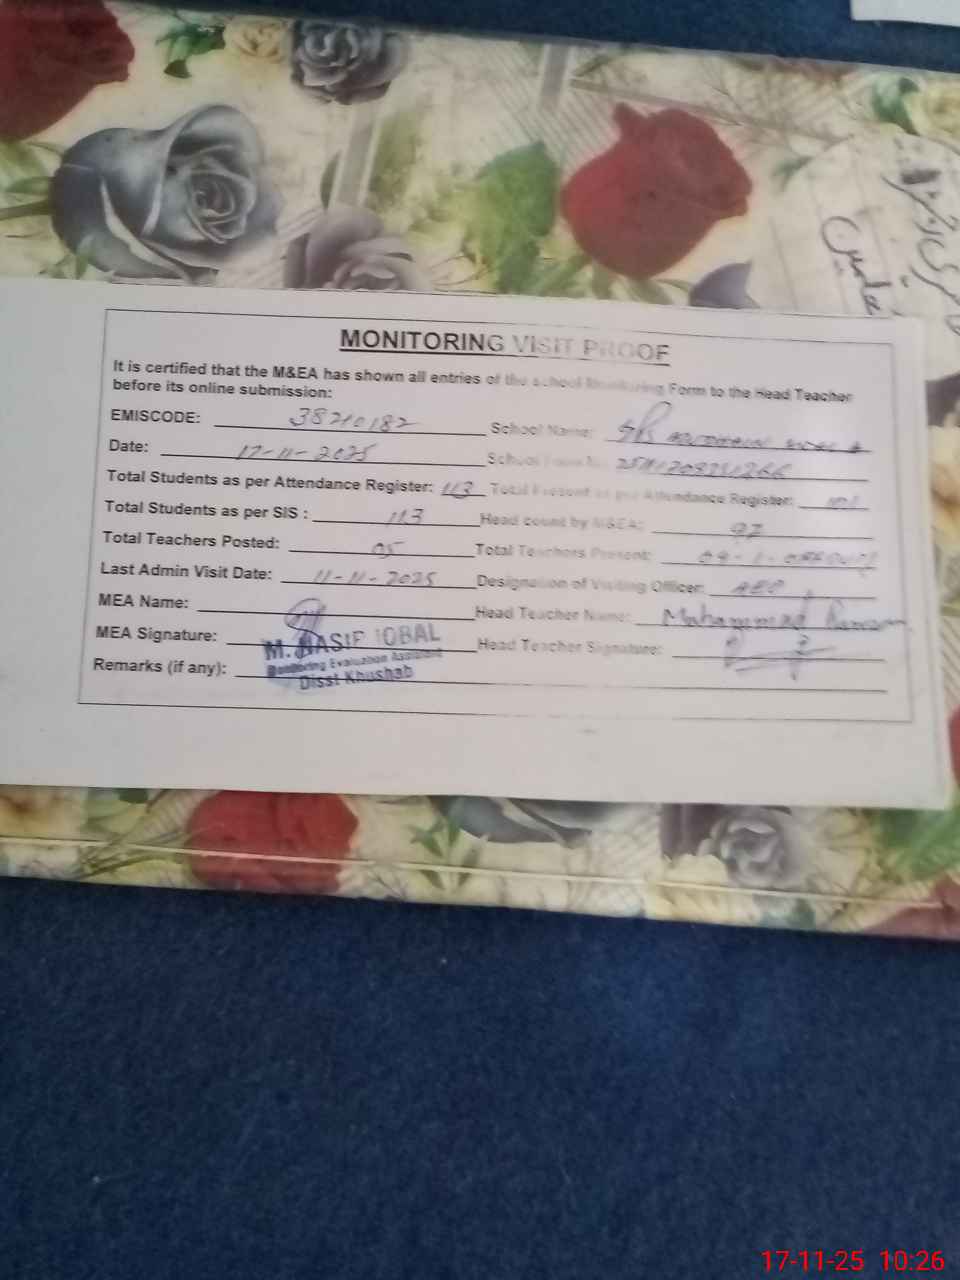 MONITORING VISIT PROOF
It is certified that the M&EA has shown all entries of the school Monitoring Form to the Head Teacher
before its online submission:
EMISCODE: 38210182 School Name: GPS
Date: 17-11-2025 School
Total Students as per Attendance Register: 113 Total Present as per Attendance Register:
Total Students as per SIS : 113 Head count by M&EA: 97
Total Teachers Posted: 05 Total Teachers Present: 04-1-
Last Admin Visit Date: 11-11-2025 Designation of Visiting Officer: AEO
MEA Name: Head Teacher Name: Muhammad
MEA Signature: M. NASIF IQBAL Head Teacher Signature:
Monitoring Evaluation Assistant
Remarks (if any): Disst Khushab
17-11-25 10:26